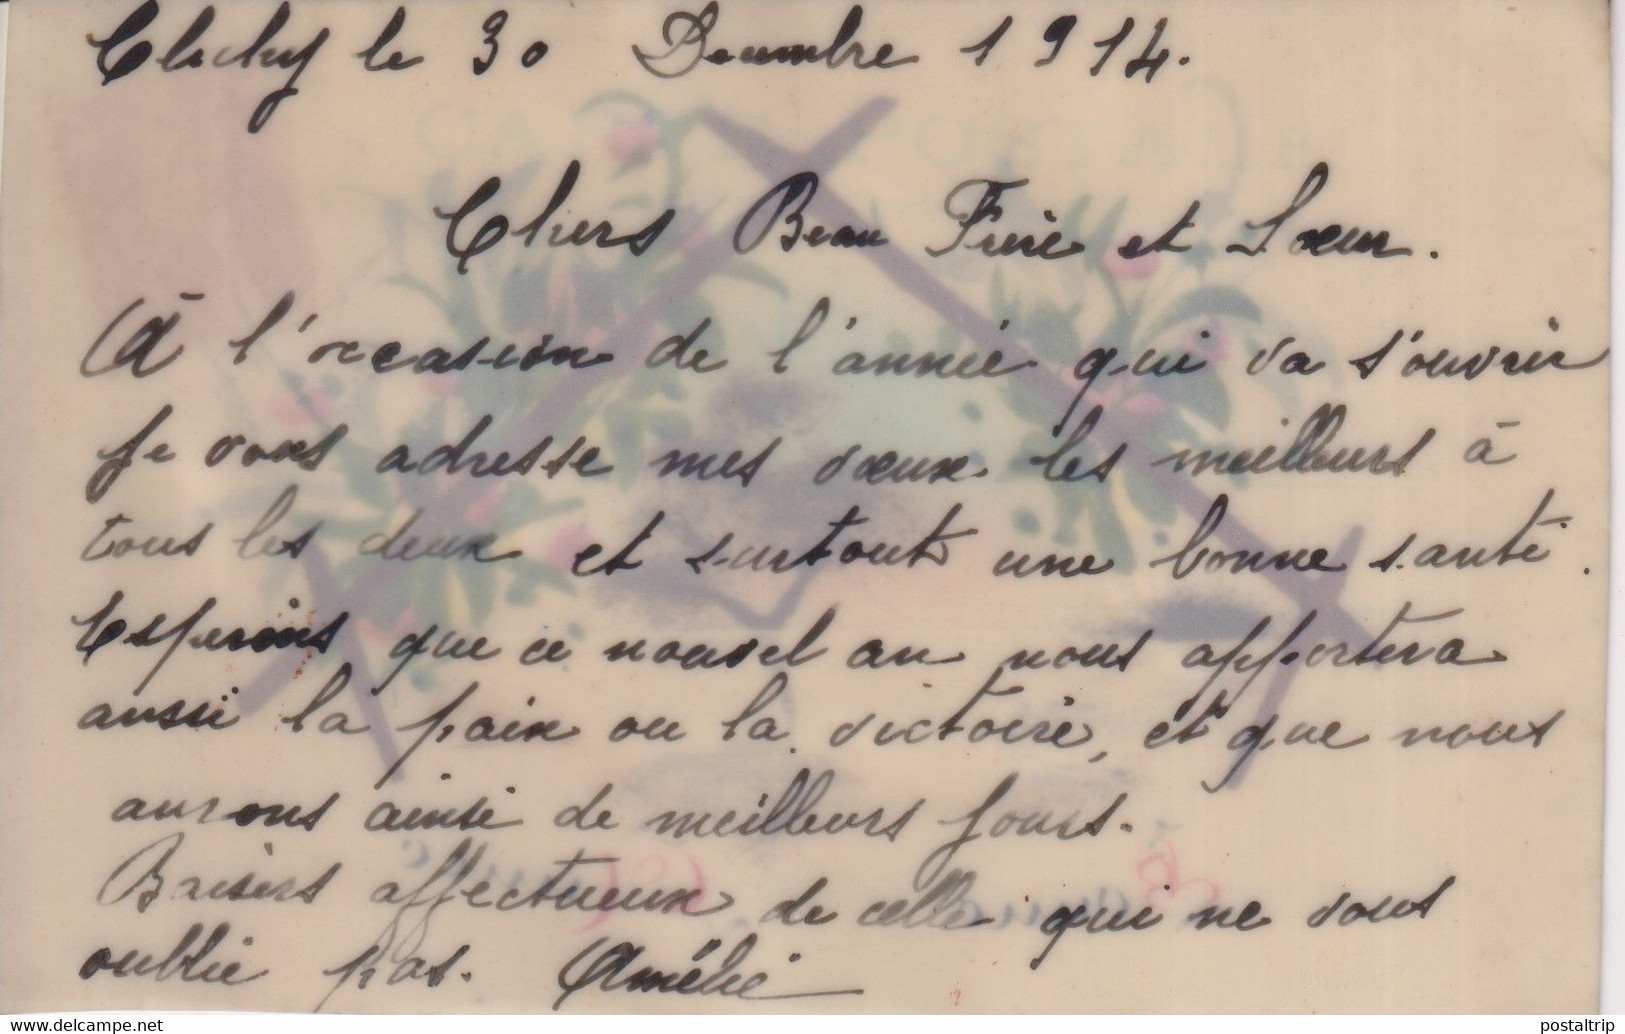 Clichy le 30 Decembre 1914.
Chers Beau Frère et Sœur.
A l'occasion de l'année qui va s'ouvrir
je vous adresse mes vœux les meilleurs à
tous les deux et surtout une bonne santé.
Esperons que ce nouvel an nous apportera
aussi la paix ou la victoire, et que nous
aurons ainsi de meilleurs jours.
Baisers affectueux de celle qui ne vous
oublie pas. Amélie
postaltrip